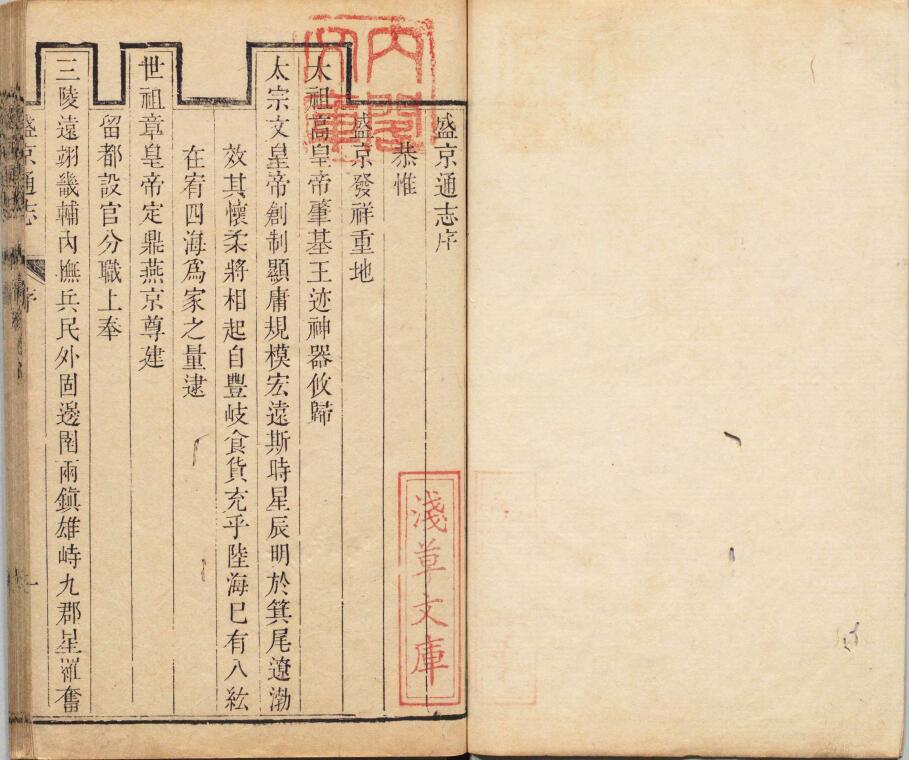 盛京通志序
恭惟
盛京發祥重地
太祖高皇帝肇基王迹神器攸歸
太宗文皇帝創制顯庸規模宏遠斯時星辰明於箕尾遼渤
效其懷柔將相起自豐岐食貨充乎陸海巳有八紘
在宥四海爲家之量逮
世祖章皇帝定鼎燕京尊建
留都設官分職上奉
三陵遠翊畿輔內撫兵民外固邊圉兩鎮雄峙九郡星羅奮
盛京通志
序
一
內閣文庫
淺草文庫